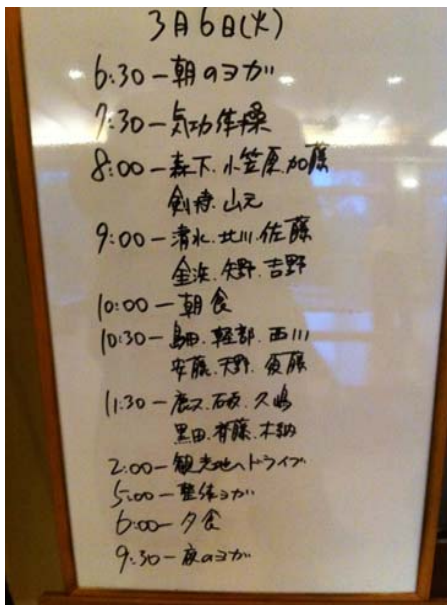 3月6日(火)
6:30ー朝のヨガ
7:30ー気功体操
8:00ー森下.小笠原.加藤
山元
9:00ー清水.北川.佐藤
金浜.矢野.吉野
10:00ー朝食
10:30ー島田.軽部.西川
安藤.天野.後藤
11:30ー 久嶋
黒田.斉藤.木納
2:00ー観光地へドライブ
5:00ー整体ヨガ
6:00ー夕食
9:30ー夜のヨガ